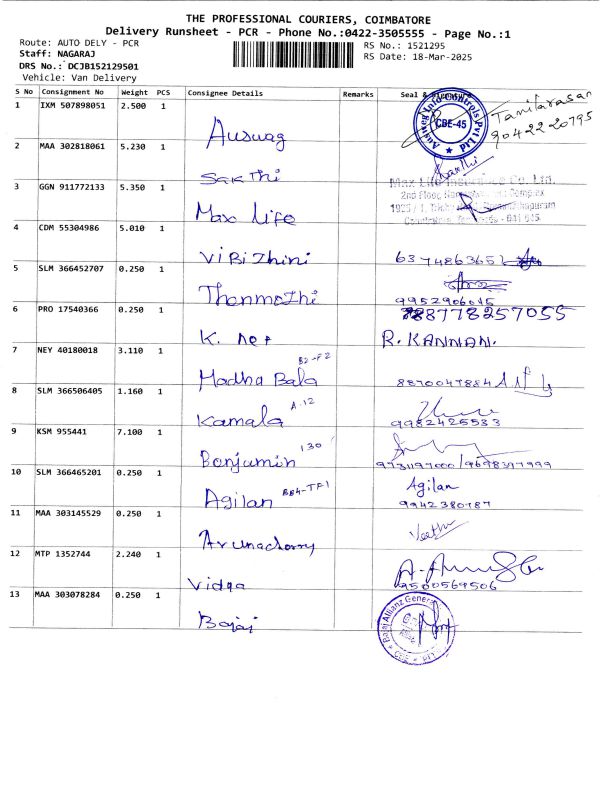 THE PROFESSIONAL COURIERS, COIMBATORE
Delivery Runsheet - PCR - Phone No.:0422-3505555 - Page No.:1
Route: AUTO DELY - PCR
RS No.: 1521295
Staff: NAGARAJ
RS Date: 18-Mar-2025
DRS No.: DCJB152129501
Vehicle: Van Delivery
S No Consignment No Weight PCS Consignee Details Remarks Seal &
1 IXM 507898051 2.500 1 Auswag CBE-45 Tamilarasan
9042220795
2 MAA 302818061 5.230 1 Sakthi
3 GGN 911772133 5.350 1 Max Life
4 CDM 55304986 5.010 1 ViBiZhini 6374863652
5 SLM 366452707 0.250 1 ThenmoZhi 9952906045
6 PRO 17540366 0.250 1 K. Net R. KANNAN.
7 NEY 40180018 3.110 1 Madha Bala B2-F2 8870047884
8 SLM 366506405 1.160 1 Kamala A-12 9982425533
9 KSM 955441 7.100 1 Benjumin 130 9731197000/9698397999
10 SLM 366465201 0.250 1 Agilan BB4-TF1 Agilan
9942380187
11 MAA 303145529 0.250 1 Arunacharry
12 MTP 1352744 2.240 1 Vidya 9500569506
13 MAA 303078284 0.250 1 Bajaj Bajaj Allianz General